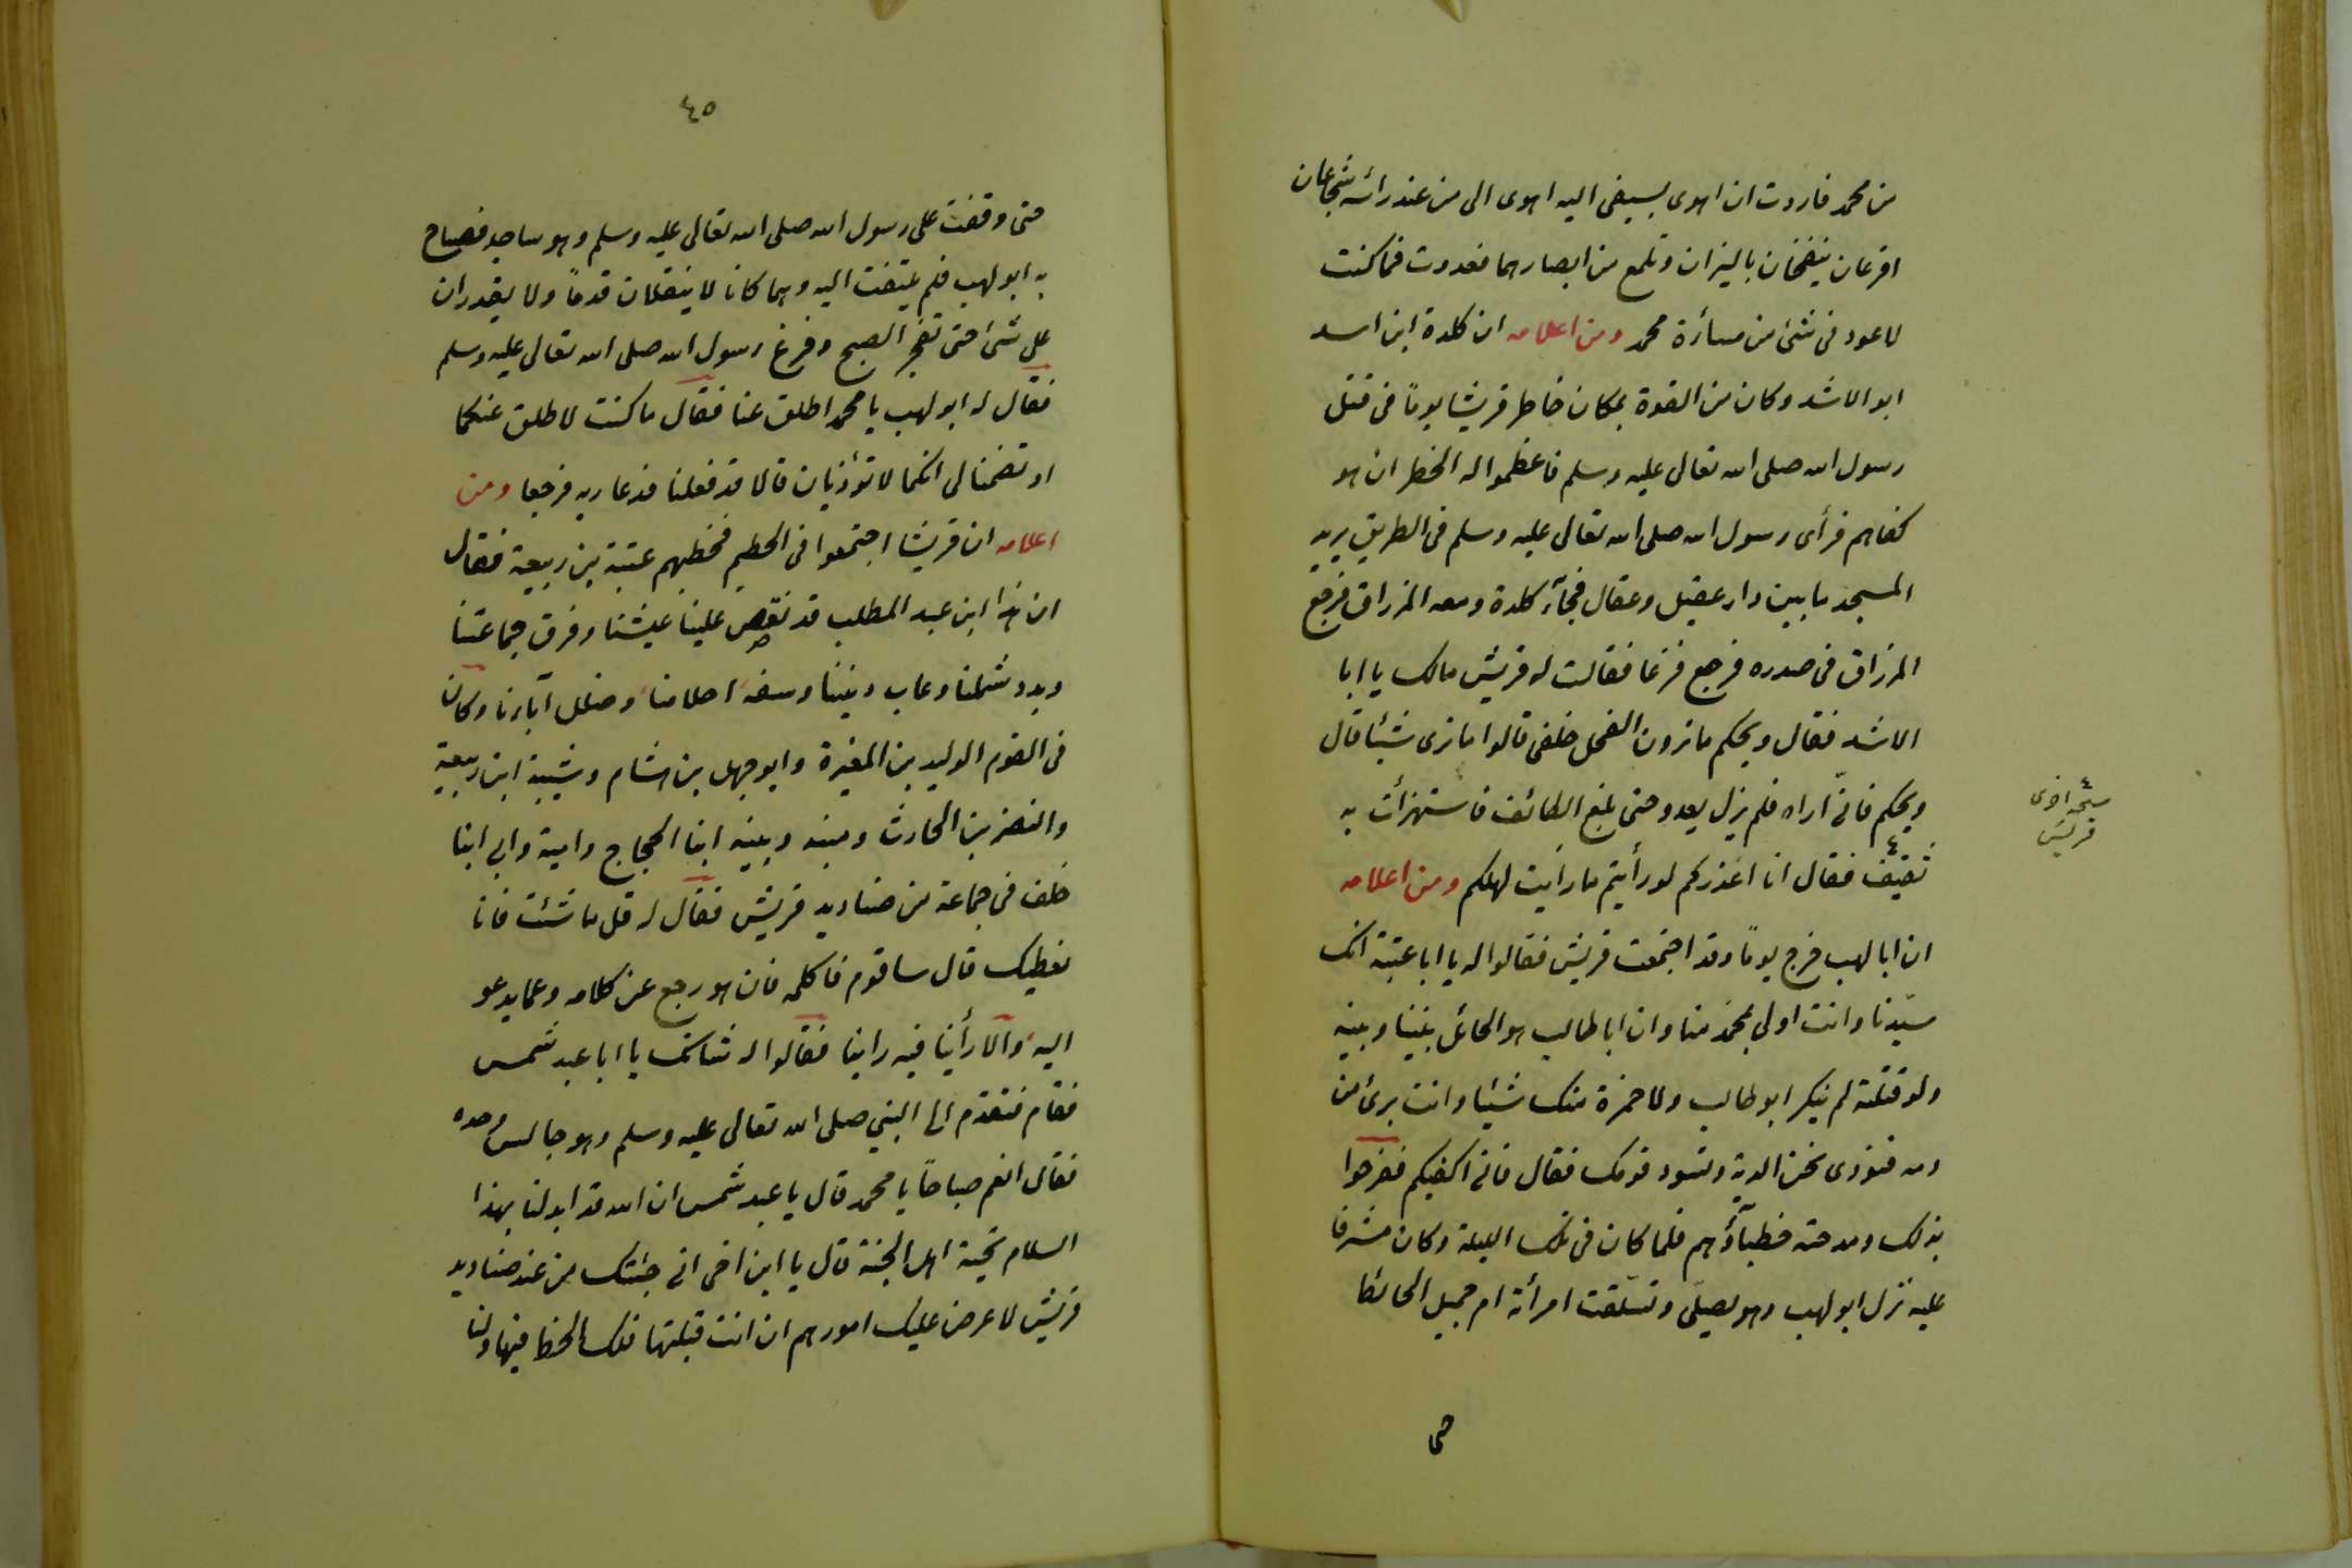 من محمد فاردت ان اهوى بسيفى اليه اهوى الى من عند رأسه شجاعان
اقرعان ينفخان بالنيران وتلمع من ابصارهما فعدوت فما كنت
لاعود فى شئ من مسأرة محمد ومن اعلامه ان كلدة ابن اسد
ابو الاشد وكان من القوة بمكان خاطر قريشا يوماً فى قتل
رسول الله صلى الله تعالى عليه وسلم فاعظموا له الخطر ان هو
كفاهم فرأى رسول الله صلى الله تعالى عليه وسلم فى الطريق يريد
المسجد ما بين دار عقيل وعقال فجآء كلدة ومعه المزراق فرجع
المزراق فى صدره فرجع فزعا فقالت له قريش مالك يا ابا
الاشد فقال ويحكم ماترون الفحل خلفى قالوا مانرى شيئا قال
ويحكم فانّى اراه فلم يزل يعدو حتى بلغ الطائف فاستهزأت به
ثقيف فقال انا اعذركم لو رأيتم ما رأيت لهلكم ومن اعلامه
ان ابا لهب خرج يوماً وقد اجتمعت قريش فقالوا له يا ابا عتبة انك
سيّدنا وانت اولى بمحمد منا وان ابا طالب هو الحائل بيننا وبينه
ولو قتلته لم ينكر ابو طالب ولا حمزة منك شيئا وانت برئ من
دمه فنؤدى نحن الدية وتسود قومك فقال فانى اكفيكم ففرحوا
بذلك ومدحته خطبآؤهم فلما كان فى تلك الليلة وكان مشرفا
عليه نزل ابو لهب وهو يصلّى وتسلّقت امرأته ام جميل الحائط
حتى
نسخه اخرى
قريش
٤٥
حتى وقفت على رسول الله صلى الله تعالى عليه وسلم وهو ساجد فصاح
به ابو لهب فلم يلتفت اليه وهما كانا لا ينقلان قدماً ولا يقدران
على شئ حتى تفجر الصبح وفرغ رسول الله صلى الله تعالى عليه وسلم
فقال له ابو لهب يا محمد اطلق عنا فقال ما كنت لاطلق عنكما
او تضمنا لى انكما لا تؤذيان قالا قد فعلنا فدعا ربه فرجعا ومن
اعلامه ان قريشا اجتمعوا فى الحطيم فخطبهم عتبة بن ربيعة فقال
ان هذا ابن عبد المطلب قد نغص علينا عيشنا وفرق جماعتنا
وبدد شملنا وعاب ديننا وسفه احلامنا وضلل آباءنا وكان
فى القوم الوليد بن المغيرة وابو جهل بن هشام وشيبة ابن ربيعة
والنضر بن الحارث ومنبه ونبيه ابنا الحجاج وامية وابى ابنا
خلف فى جماعة من صناديد قريش فقال له قل ما شئت فانا
نعطيك قال ساقوم فاكلمه فان هو رجع عن كلامه وعما يدعو
اليه والا رأينا فيه راينا فقالوا له شانك يا ابا عبد شمس
فقام فتقدم الى النبي صلى الله تعالى عليه وسلم وهو جالس وحده
فقال انعم صباحاً يا محمد قال يا عبد شمس ان الله قد ابدلنا بهذا
السلام تحية اهل الجنة قال يا ابن اخى انى جئتك من عند صناديد
قريش لاعرض عليك امورهم ان انت قبلتها فلك الحظ فيها ولنا